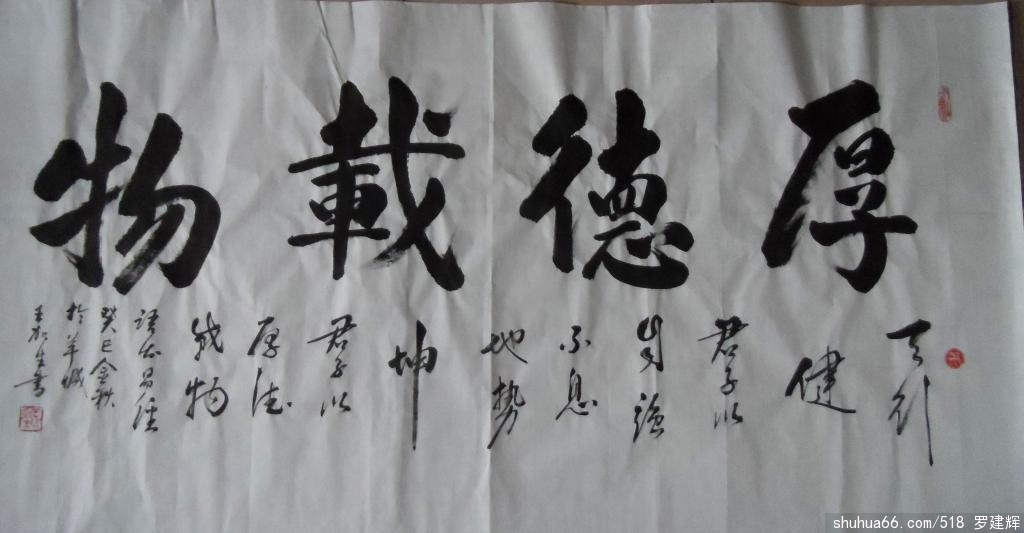 厚德載物
天行
健
君子以
自强
不息
地势
坤
君子以
厚德
载物
语出易经
癸巳金秋
於羊城
shuhua66.com/518 罗建辉